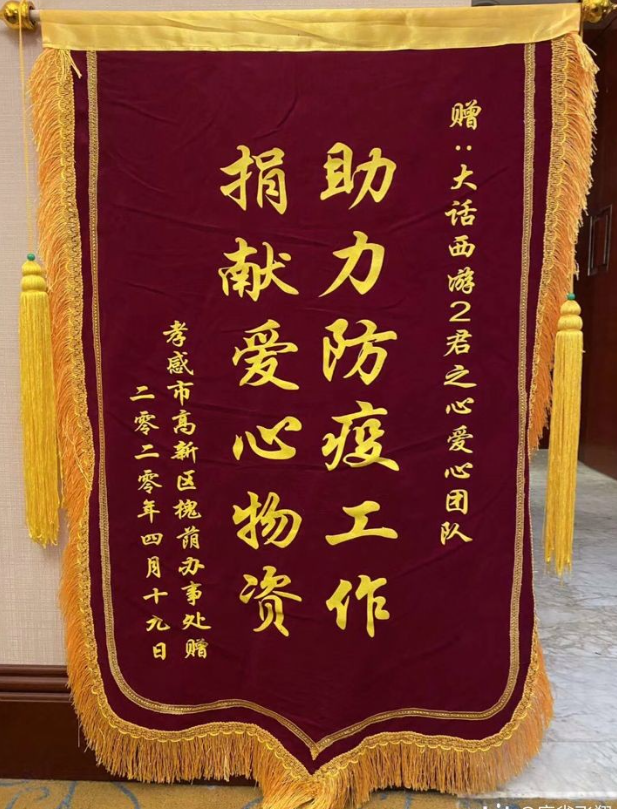 赠：大话西游2君之心爱心团队
助力防疫工作
捐献爱心物资
孝感市高新区槐荫办事处赠
二零二零年四月十九日